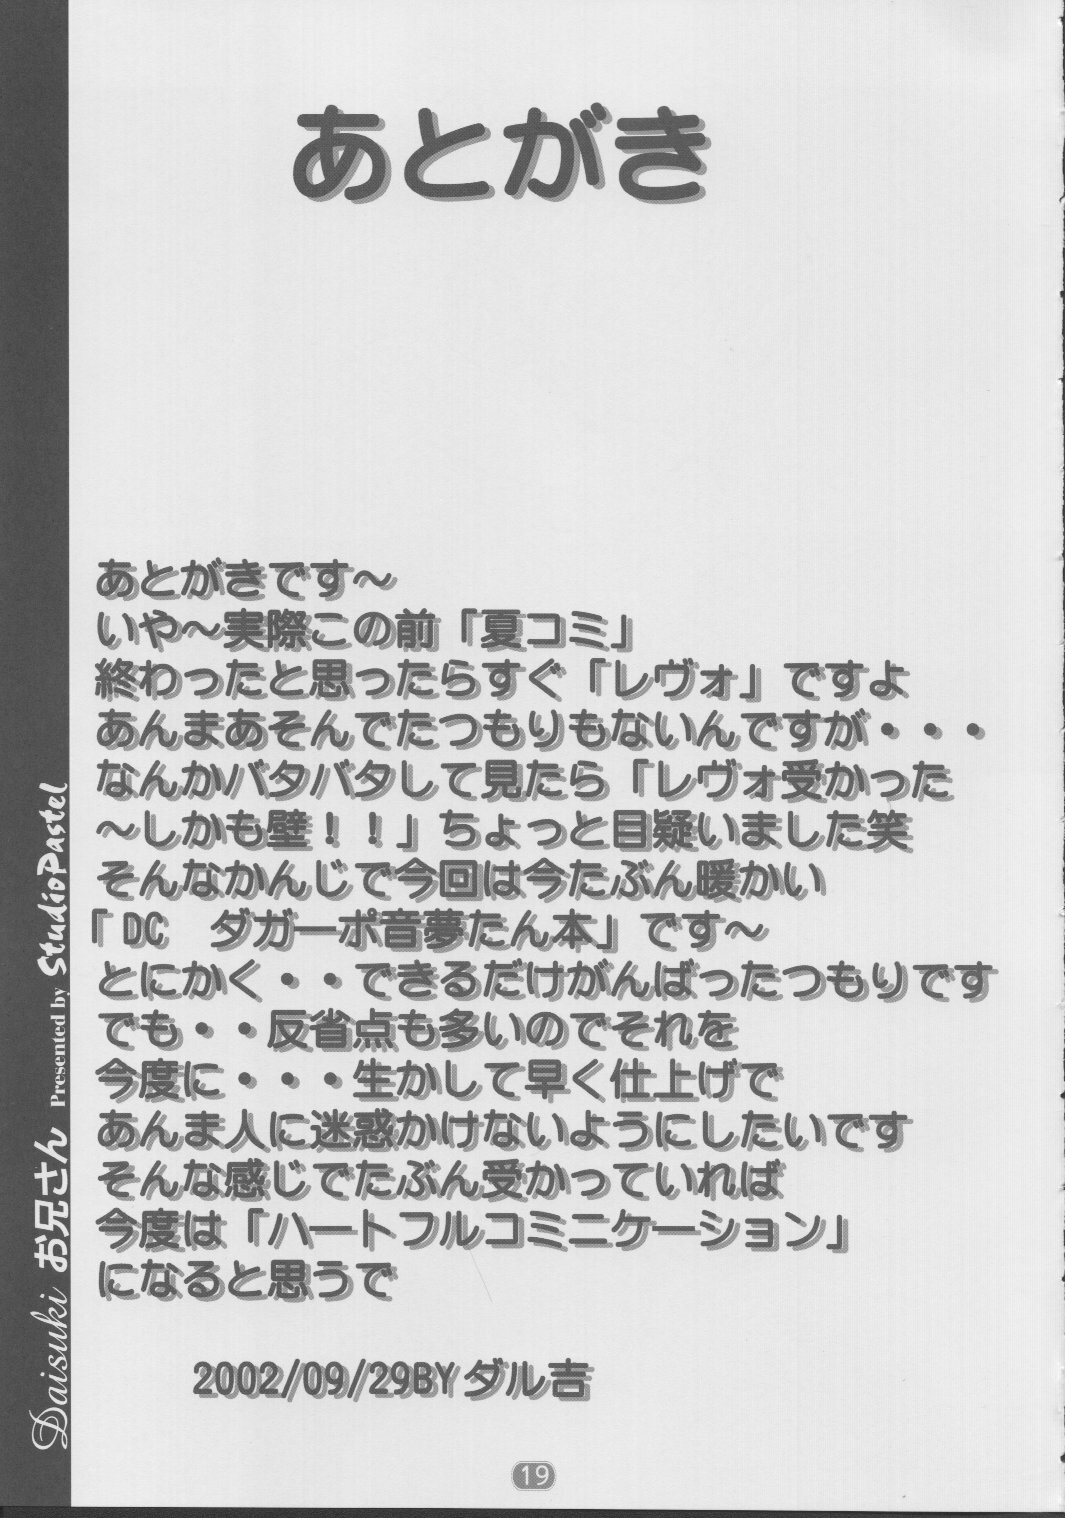 あとがき
あとがきです～
いや～実際この前「夏コミ」
終わったと思ったらすぐ「レヴォ」ですよ
あんまあそんでたつもりもないんですが・・・
なんかバタバタして見たら「レヴォ受かった
～しかも壁！！」ちょっと目疑いました笑
そんなかんじで今回は今たぶん暖かい
「DC　ダガーポ音夢たん本」です～
とにかく・・できるだけがんばったつもりです
でも・・反省点も多いのでそれを
今度に・・・生かして早く仕上げで
あんま人に迷惑かけないようにしたいです
そんな感じでたぶん受かっていれば
今度は「ハートフルコミニケーション」
になると思うで
2002/09/29BYダル吉
19
Daisuki お兄さん Presented by StudioPastel